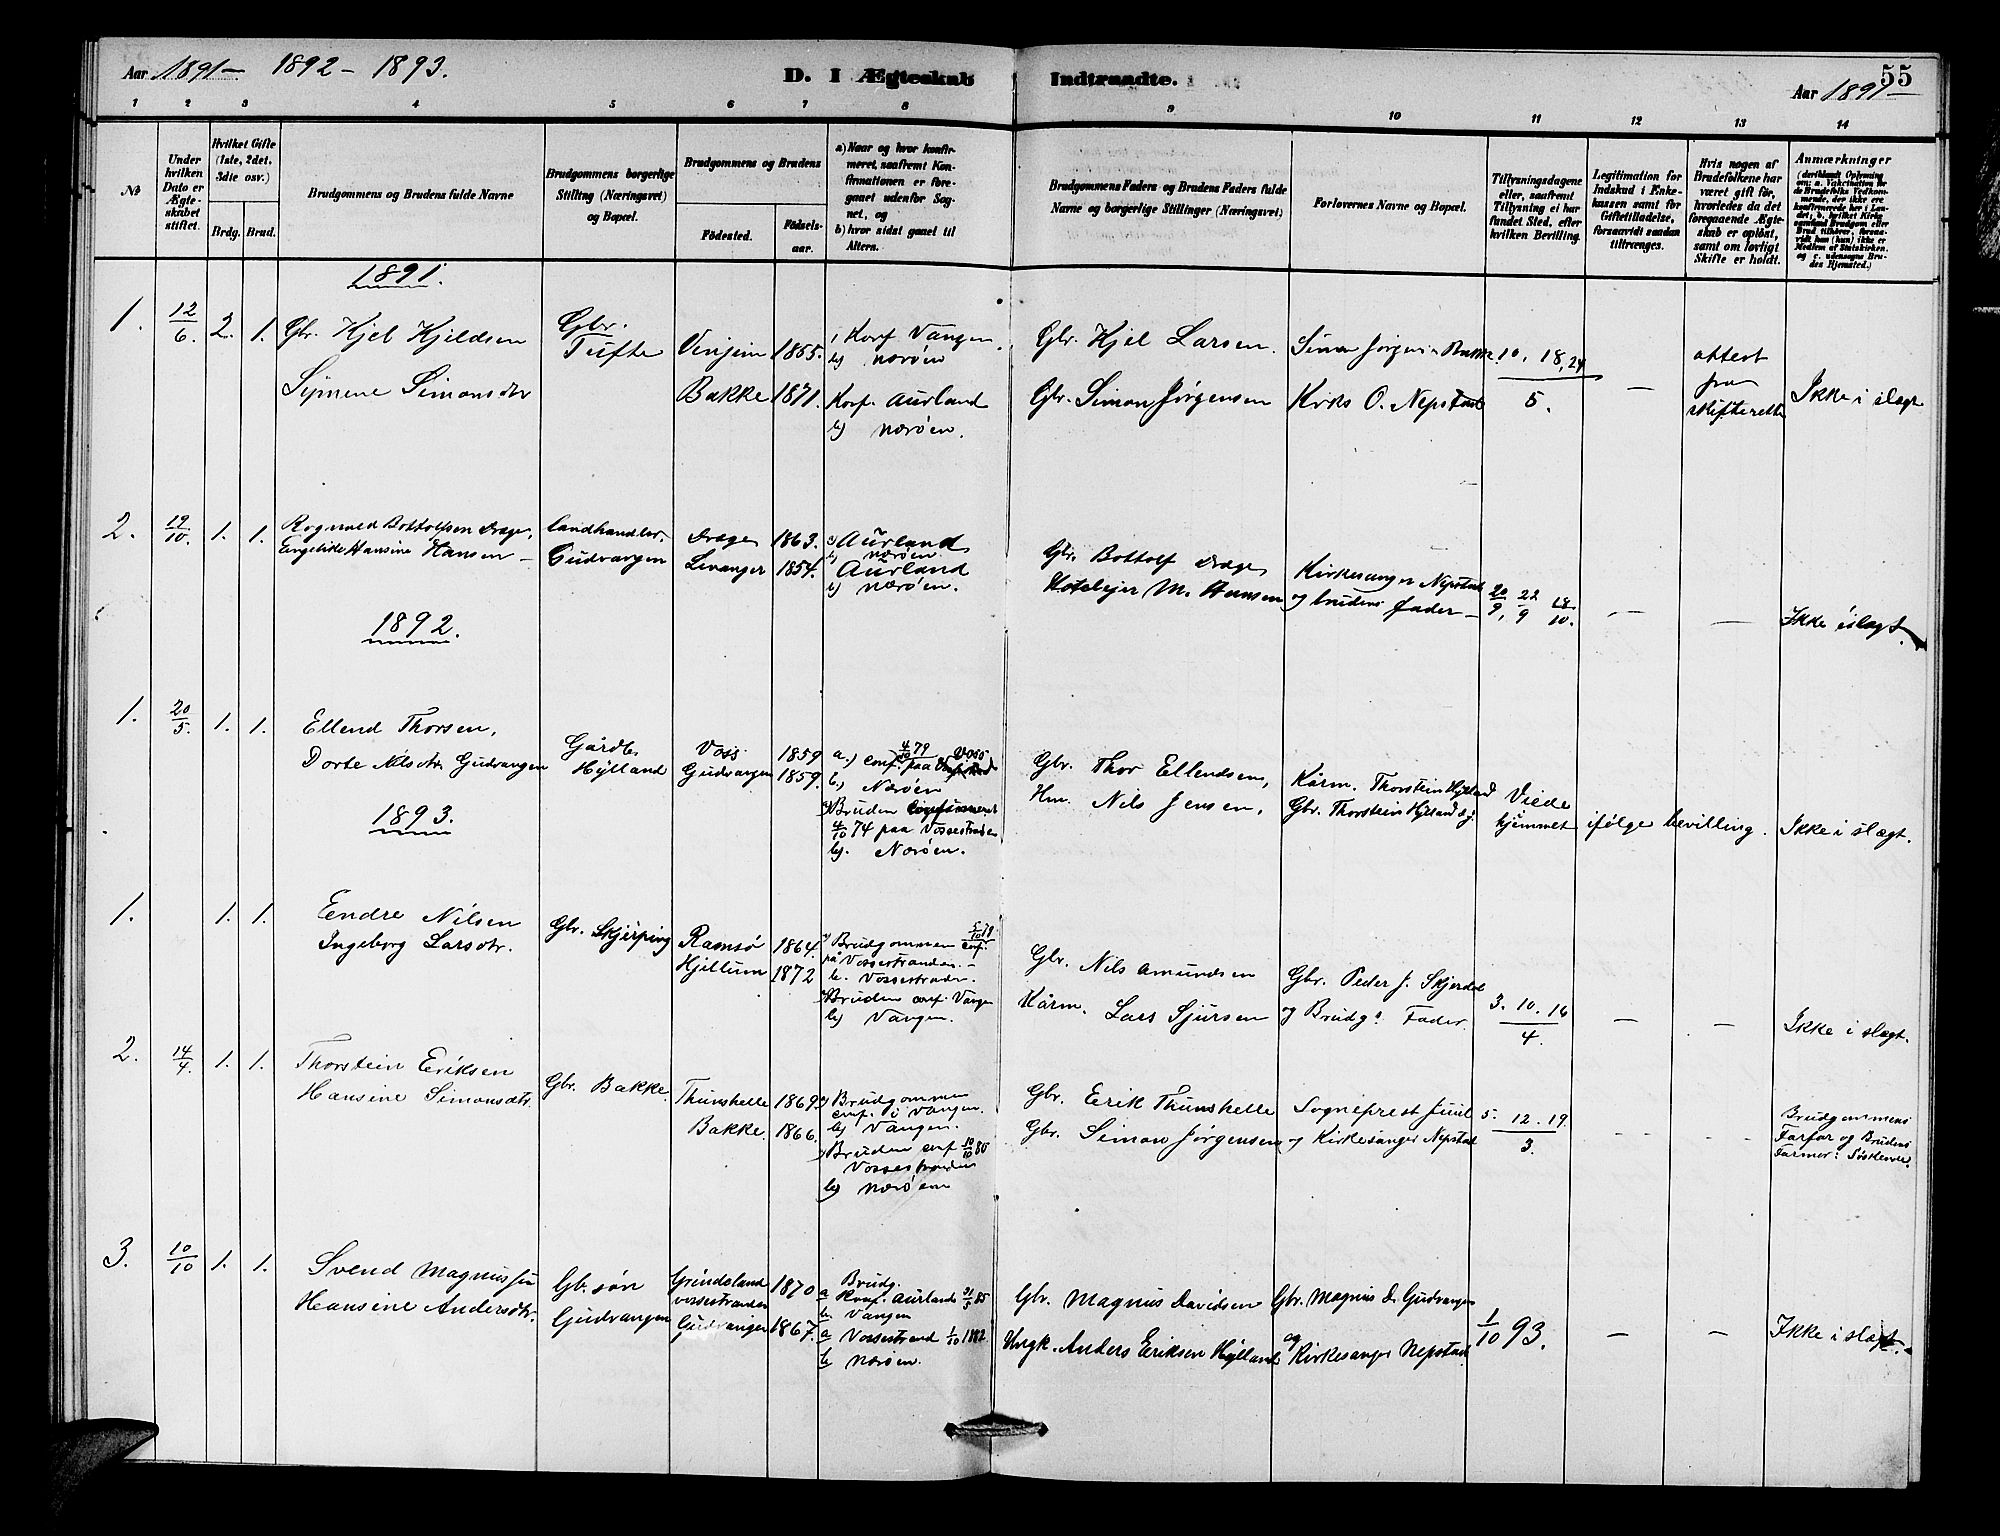 Aar 1891 — 1892 — 1893.
D. I Ægteskab Indtraadte.
55
Aar 1891 —
1 2 3 4 5 6 7 8 9 10 11 12 13 14
№
Under hvilken Dato er Ægteskabet stiftet.
Hvilket Gifte (1ste, 2det, 3die osv.)
Brdg. Brud.
Brudgommens og Brudens fulde Navne
Brudgommens borgerlige Stilling (Næringsvei) og Bopæl.
Brudgommens og Brudens
Fødested. Fødselsaar.
a) Naar og hvor konfirmeret, saafremt Konfirmationen er foregaaet udenfor Sognet, og
b) hvor sidst gaaet til Altern.
Brudgommens Faders og Brudens Faders fulde Navne og borgerlige Stillinger (Næringsvei)
Forlovernes Navne og Bopæl.
Tillysningsdagene eller, saafremt Tillysning ei har fundet Sted, efter hvilken Bevilling.
Legitimation for Indskud i Enkekassen samt for Giftetilladelse, forsaavidt saadan tiltrænges.
Hvis nogen af Brudefolkene har været gift før, hvorledes da det foregaaende Ægteskab er opløst, samt om lovligt Skifte er holdt.
Anmærkninger
1891.
1. 12/6 2. 1. Gbr. Kjel Kjeldsen
Gbr. Tufte
Vinjum 1855.
i Konf Vangen.
b) Nærøen
Gbr. Kjel Larsen.
10, 18, 24
5.
attest fra skifteretten
Ikke i slægt
Simonsdtr
Bakke 1871.
Konf. Aurland
b) Nærøen.
Gbr. Simon Jørgensen
Kirks O. Nepstad
—
2. 19/10 1. 1. Bottolfsen Drage,
Hansine Hansen —
Landhandler.
Gudvangen
Drage 1863.
Levanger 1854.
a) Aurland
b) Nærøen.
Aurland
b) Nærøen.
Gbr. Bottolf Drage
Hotelejer M. Hansen
Kirkesanger Nepstad
og brudens Fader —
20/9, 22/9 18/10.
— —
Ikke i slægt.
1892.
1. 20/5. 1. 1. Ellend Thorsen,
Dorte Nilsdtr. Gudvangen
Gårdb.
Hylland
Voss 1859
Gudvangen 1859.
a.) conf. 4/10 79 paa Voss
b) Nærøen
a) Bruden confirmeret
4/10 74 paa Vossestranden
b). Nærøen.
Gbr. Thor Ellendsen,
Hm. Nils Jensen,
Kårm. Thorstein Hylland
Gbr. Thorstein Hylland d.y.
Viede hjemmet ifølge bevilling.
Ikke i slægt.
1893.
1. 1. 1. Endre Nilsen
Ingeborg Larsdtr.
Gbr. Skjerping
Ramsø 1864.
Hjellum 1872
a) Brudgommen conf.
på Vossestranden. —
b. Vossestranden.
a) Bruden conf. Vangen
b) Vangen.
Gbr. Nils Amundsen
Kårm. Lars Sjursen
Gbr. Peder J. Skjerdal
og Brudgs Fader.
3. 10. 16
4.
— —
Ikke i slægt.
2. 14/4. 1. 1. Thorstein Eriksen
Hansine Simonsdtr.
Gbr. Bakke.
Thunshelle 1869.
Bakke. 1866.
a) Brudgommen
conf. i Vangen.
b) Vangen.
a) Bruden conf 10/10 80
Vossestranden
b) Nærøen
Gbr. Erik Thunshelle
Gbr. Simon Jørgensen
Sogneprest Juul
og Kirkesanger Nepstad
5. 12. 19.
3.
— —
Brudgommens
Farfar og Brudens
Farmor: Søskende.
3. 10/10 1. 1. Svend Magnussen
Hansine Andersdtr.
Gb. søn
Gudvangen
Grindeland
Vossestranden 1870
Gudvangen 1867.
Brudg.
a Konf. Aurland 31/5 85
b. Vangen
a Vossestrand 1/10 1882
b Nærøen.
Gbr. Magnus Davidsen
Ungk. Anders Eriksen Hylland
Gbr. Magnus D. Gudvangen
og Kirkesanger Nepstad
1/10 93.
— —
Ikke i slægt.